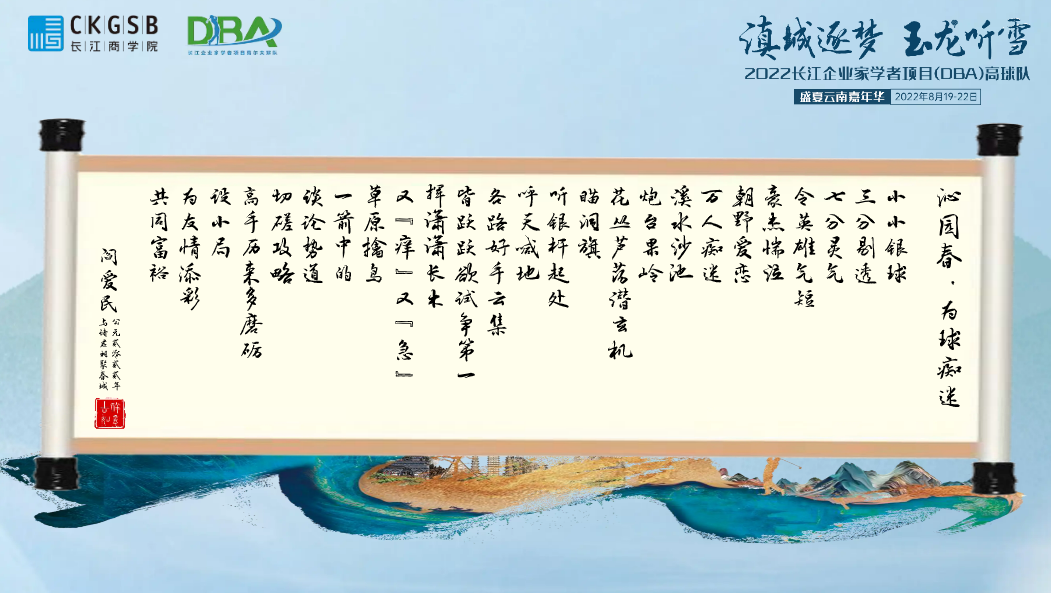 CKGSB
长江商学院
DBA
滇城逐梦 玉龙听雪
2022长江企业家学者项目(DBA)高球队
盛夏云南嘉年华 2022年8月19-22日
沁园春·为球痴迷
小小银球
三分剔透
七分灵气
令英雄气短
豪杰懦泣
朝野爱恋
万人痴迷
溪水沙池
炮台果岭
花丛芦荡潜玄机
瞄洞旗
听银杆起处
呼天喊地
各路好手云集
皆跃跃欲试争第一
挥潇潇长木
又『痒』又『急』
草原擒鸟
一箭中的
谈论势道
切磋攻略
高手历来多磨砺
设小局
为友情添彩
共同富裕
阎爱民
公元贰零贰贰年
与诸君相聚春城